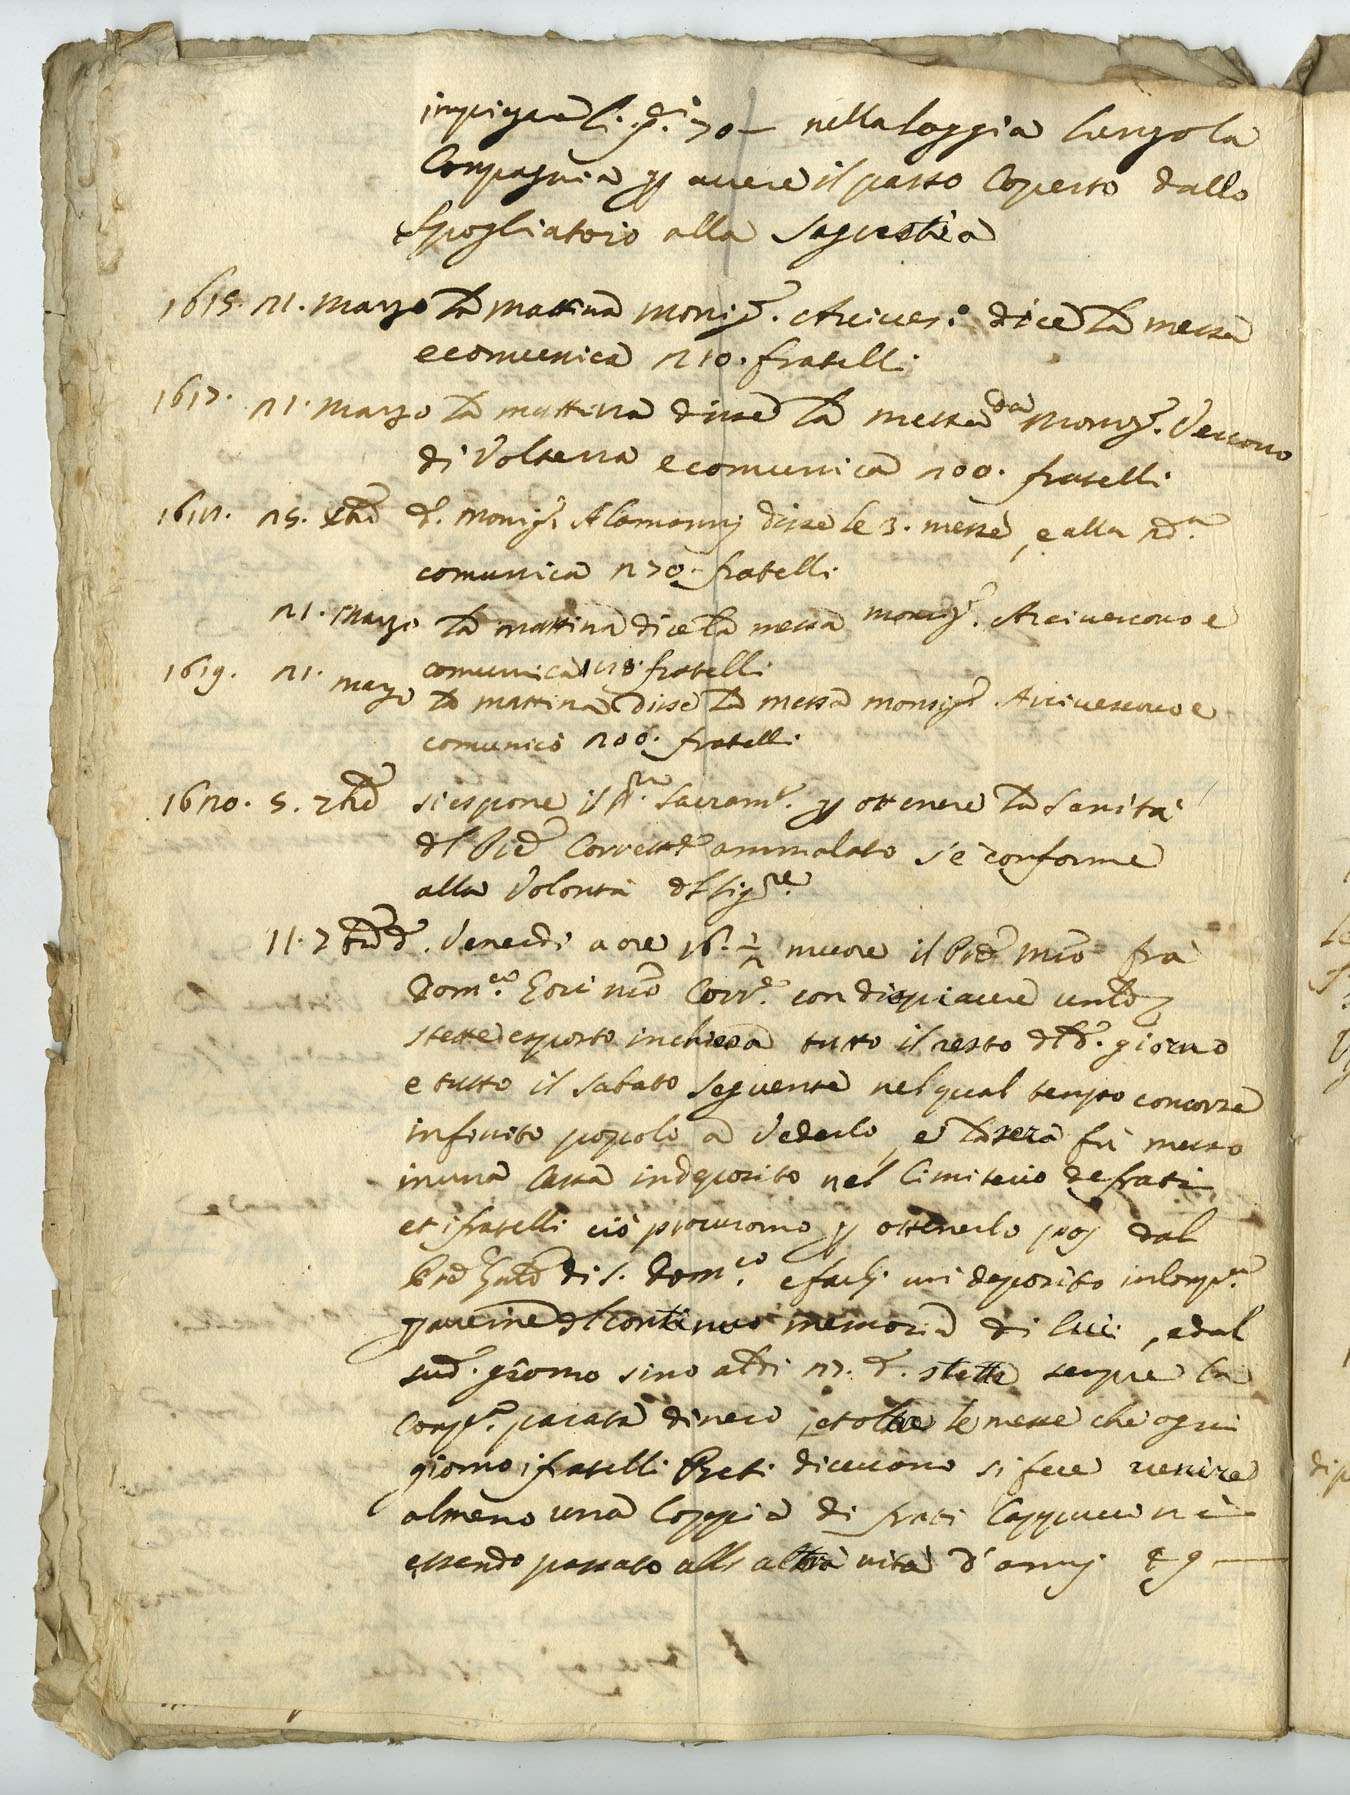 impiegare li d.i 70 — nella loggia lungo la
Compagnia p avere il passo Coperto dallo
Spogliatoio alla Sagrestia
1615. 21. Marzo la mattina Monig.r Arcives.o dice la messa
e comunica 210. fratelli
1617. 21. Marzo la mattina disse la messa da Monig.r Vescovo
di Volterra e comunica 200. fratelli
25. d.o Monig.r Alamannj disse le 3. messe, e alla 2da
comunica 270. fratelli
21. Marzo la mattina dice la messa Monsig.r Arcivescovo e
comunica fratelli
1619. 21. Marzo la mattina disse la messa monsig.r Arcivescovo e
comunicò 200. fratelli
1620. 5. si espone il SS.mo Sacram.to p ottenere la Sanità
del Pre Corrett.e ammalato s'è conforme
alla Volontà del Sig.re
11. d.o Venerdi a ore 16. 1/2 muore il Pre Mro fra
Dom.co Gori nro Corr.e con dispiacere
stette esposto in chiesa tutto il resto del d.o giorno
e tutto il Sabato seguente nel qual tempo concorse
infinito popolo a Vederlo, e la sera fù messo
in una Cassa in deposito nel Cimiterio de frati
et i fratelli ciò procurorno p ottenerlo poj dal
Pre di S. Dom.co e farlj un deposito in Comp.a
p averne del continuo memoria di lui, e dal
sud.o giorno sino al di 27. d.o stette sempre la
Comp.a parata di nero, et oltre le messe che ogni
giorno i fratelli Preti dicevano si fece venire
almeno una Coppia di frati Cappuccini
essendo passato all altra vita d'annj 69 —